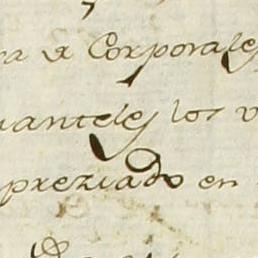 ra de Corporales
uanteles los v
preziado en